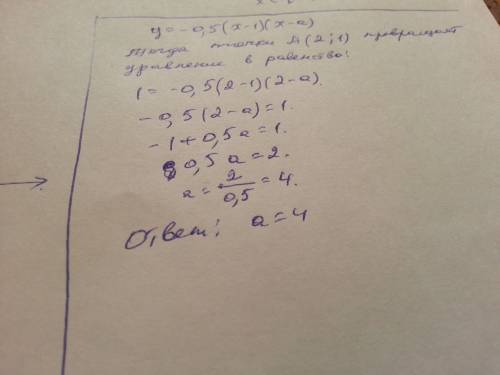 y = -0,5(x-1)(x-a)
Тогда точки A(2;1) превращает
уравнение в равенство:
1 = -0,5(2-1)(2-a).
-0,5(2-a)=1.
-1+0,5a=1.
0,5a=2.
a=2/0,5=4.
Ответ: a=4